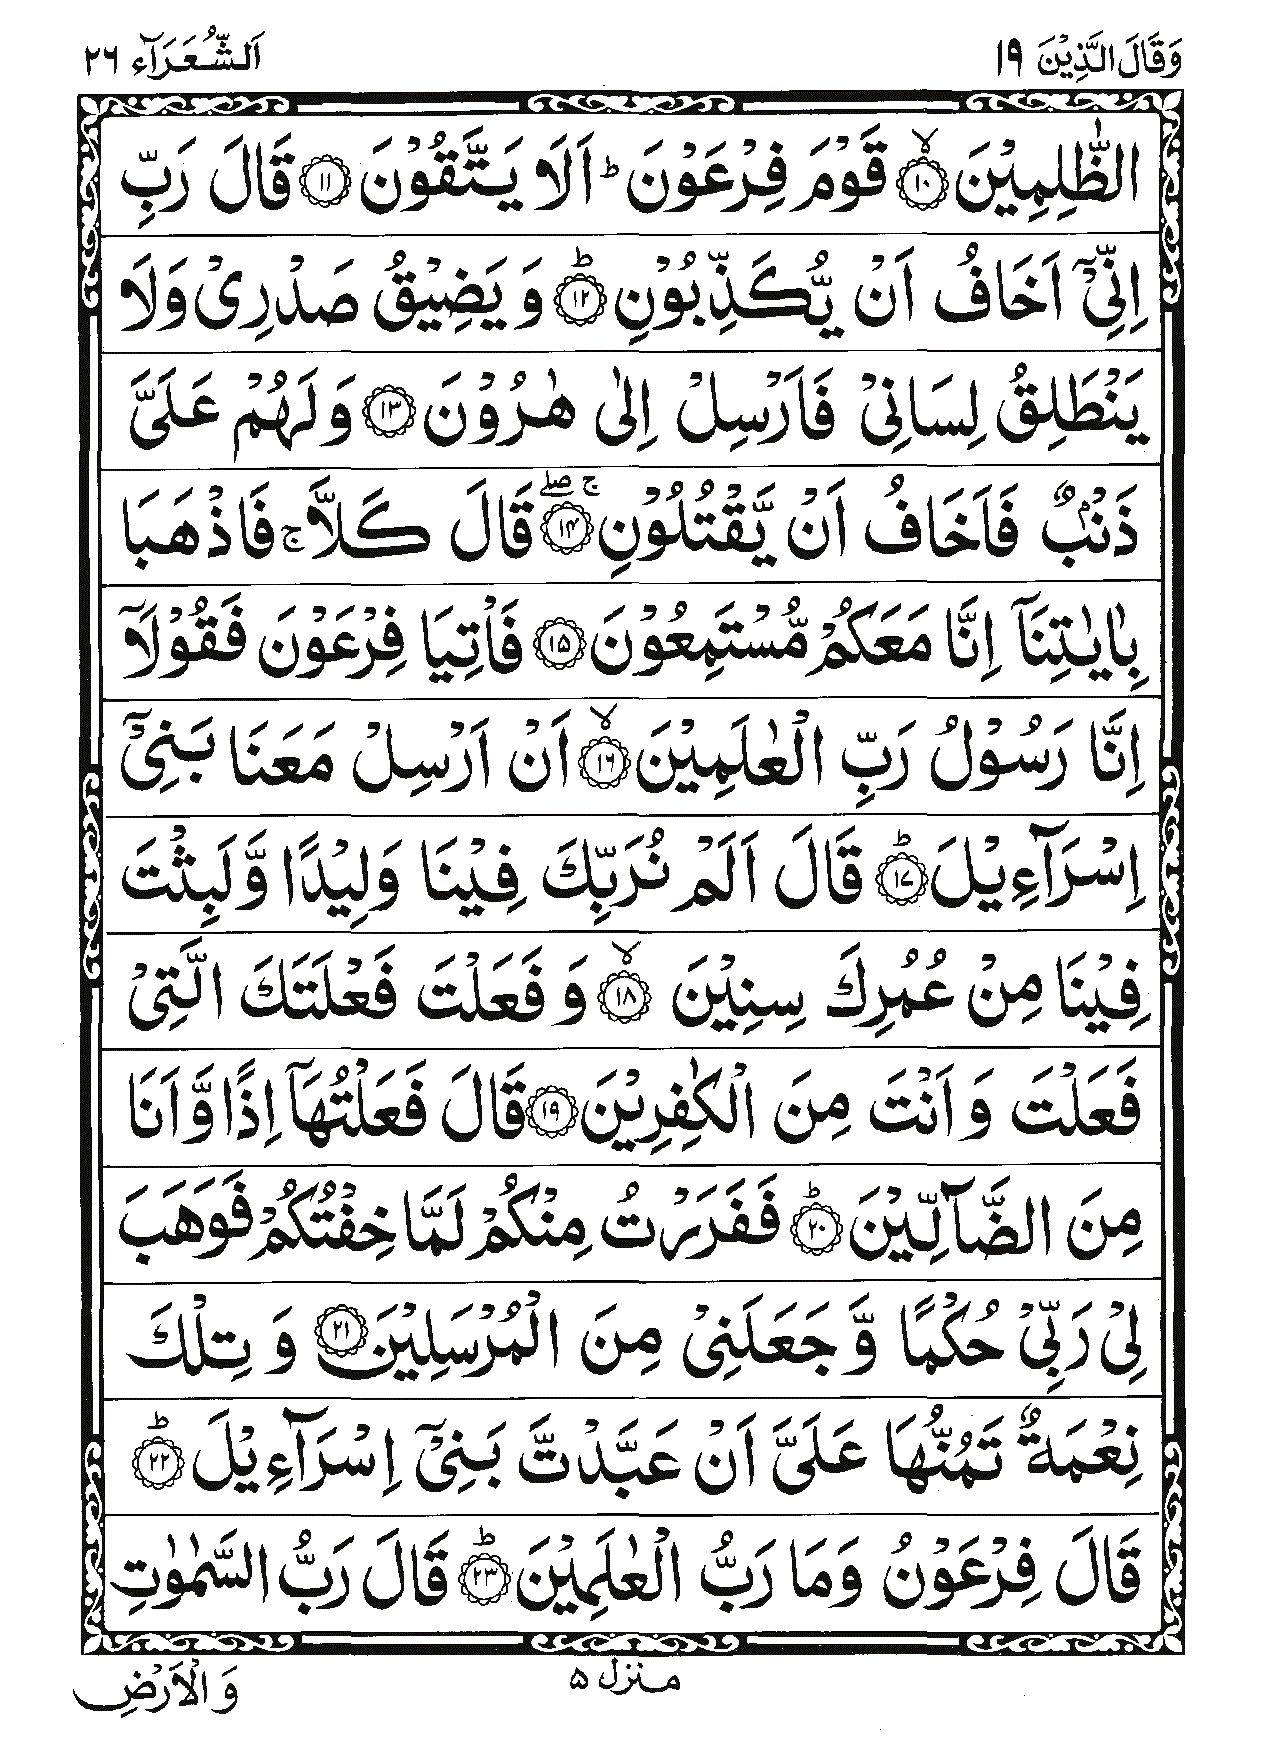 وَقَالَ الَّذِيْنَ ١٩
اَلشُّعَرَآء ٢٦
الظّٰلِمِيْنَ ۙ‏﴿١٠﴾ قَوْمَ فِرْعَوْنَ‌ ؕ اَلَا يَتَّقُوْنَ ﴿١١﴾ قَالَ رَبِّ
اِنِّىْۤ اَخَافُ اَنْ يُّكَذِّبُوْنِ ؕ﴿١٢﴾ وَ يَضِيْقُ صَدْرِىْ وَلَا
يَنْطَلِقُ لِسَانِىْ فَاَرْسِلْ اِلٰى هٰرُوْنَ ﴿١٣﴾ وَلَهُمْ عَلَىَّ
ذَنْۢبٌ فَاَخَافُ اَنْ يَّقْتُلُوْنِ ۚۖ﴿١٤﴾ قَالَ كَلَّا‌ ۚ فَاذْهَبَا
بِاٰيٰتِنَاۤ اِنَّا مَعَكُمْ مُّسْتَمِعُوْنَ ﴿١٥﴾ فَاْتِيَا فِرْعَوْنَ فَقُوْلَاۤ
اِنَّا رَسُوْلُ رَبِّ الْعٰلَمِيْنَ ۙ﴿١٦﴾ اَنْ اَرْسِلْ مَعَنَا بَنِىْۤ
اِسْرَآءِيْلَ ؕ﴿١٧﴾ قَالَ اَلَمْ نُرَبِّكَ فِيْنَا وَلِيْدًا وَّلَبِثْتَ
فِيْنَا مِنْ عُمُرِكَ سِنِيْنَ ۙ﴿١٨﴾ وَ فَعَلْتَ فَعْلَتَكَ الَّتِىْ
فَعَلْتَ وَ اَنْتَ مِنَ الْكٰفِرِيْنَ ﴿١٩﴾ قَالَ فَعَلْتُهَاۤ اِذًا وَّ اَنَا
مِنَ الضَّآلِّيْنَ ؕ﴿٢٠﴾ فَفَرَرْتُ مِنْكُمْ لَمَّا خِفْتُكُمْ فَوَهَبَ
لِىْ رَبِّىْ حُكْمًا وَّ جَعَلَنِىْ مِنَ الْمُرْسَلِيْنَ ﴿٢١﴾ وَ تِلْكَ
نِعْمَةٌ تَمُنُّهَا عَلَىَّ اَنْ عَبَّدْتَّ بَنِىْۤ اِسْرَآءِيْلَ ؕ﴿٢٢﴾
قَالَ فِرْعَوْنُ وَمَا رَبُّ الْعٰلَمِيْنَ ؕ﴿٢٣﴾ قَالَ رَبُّ السَّمٰوٰتِ
منزل ۵
وَ الْاَرْضِ